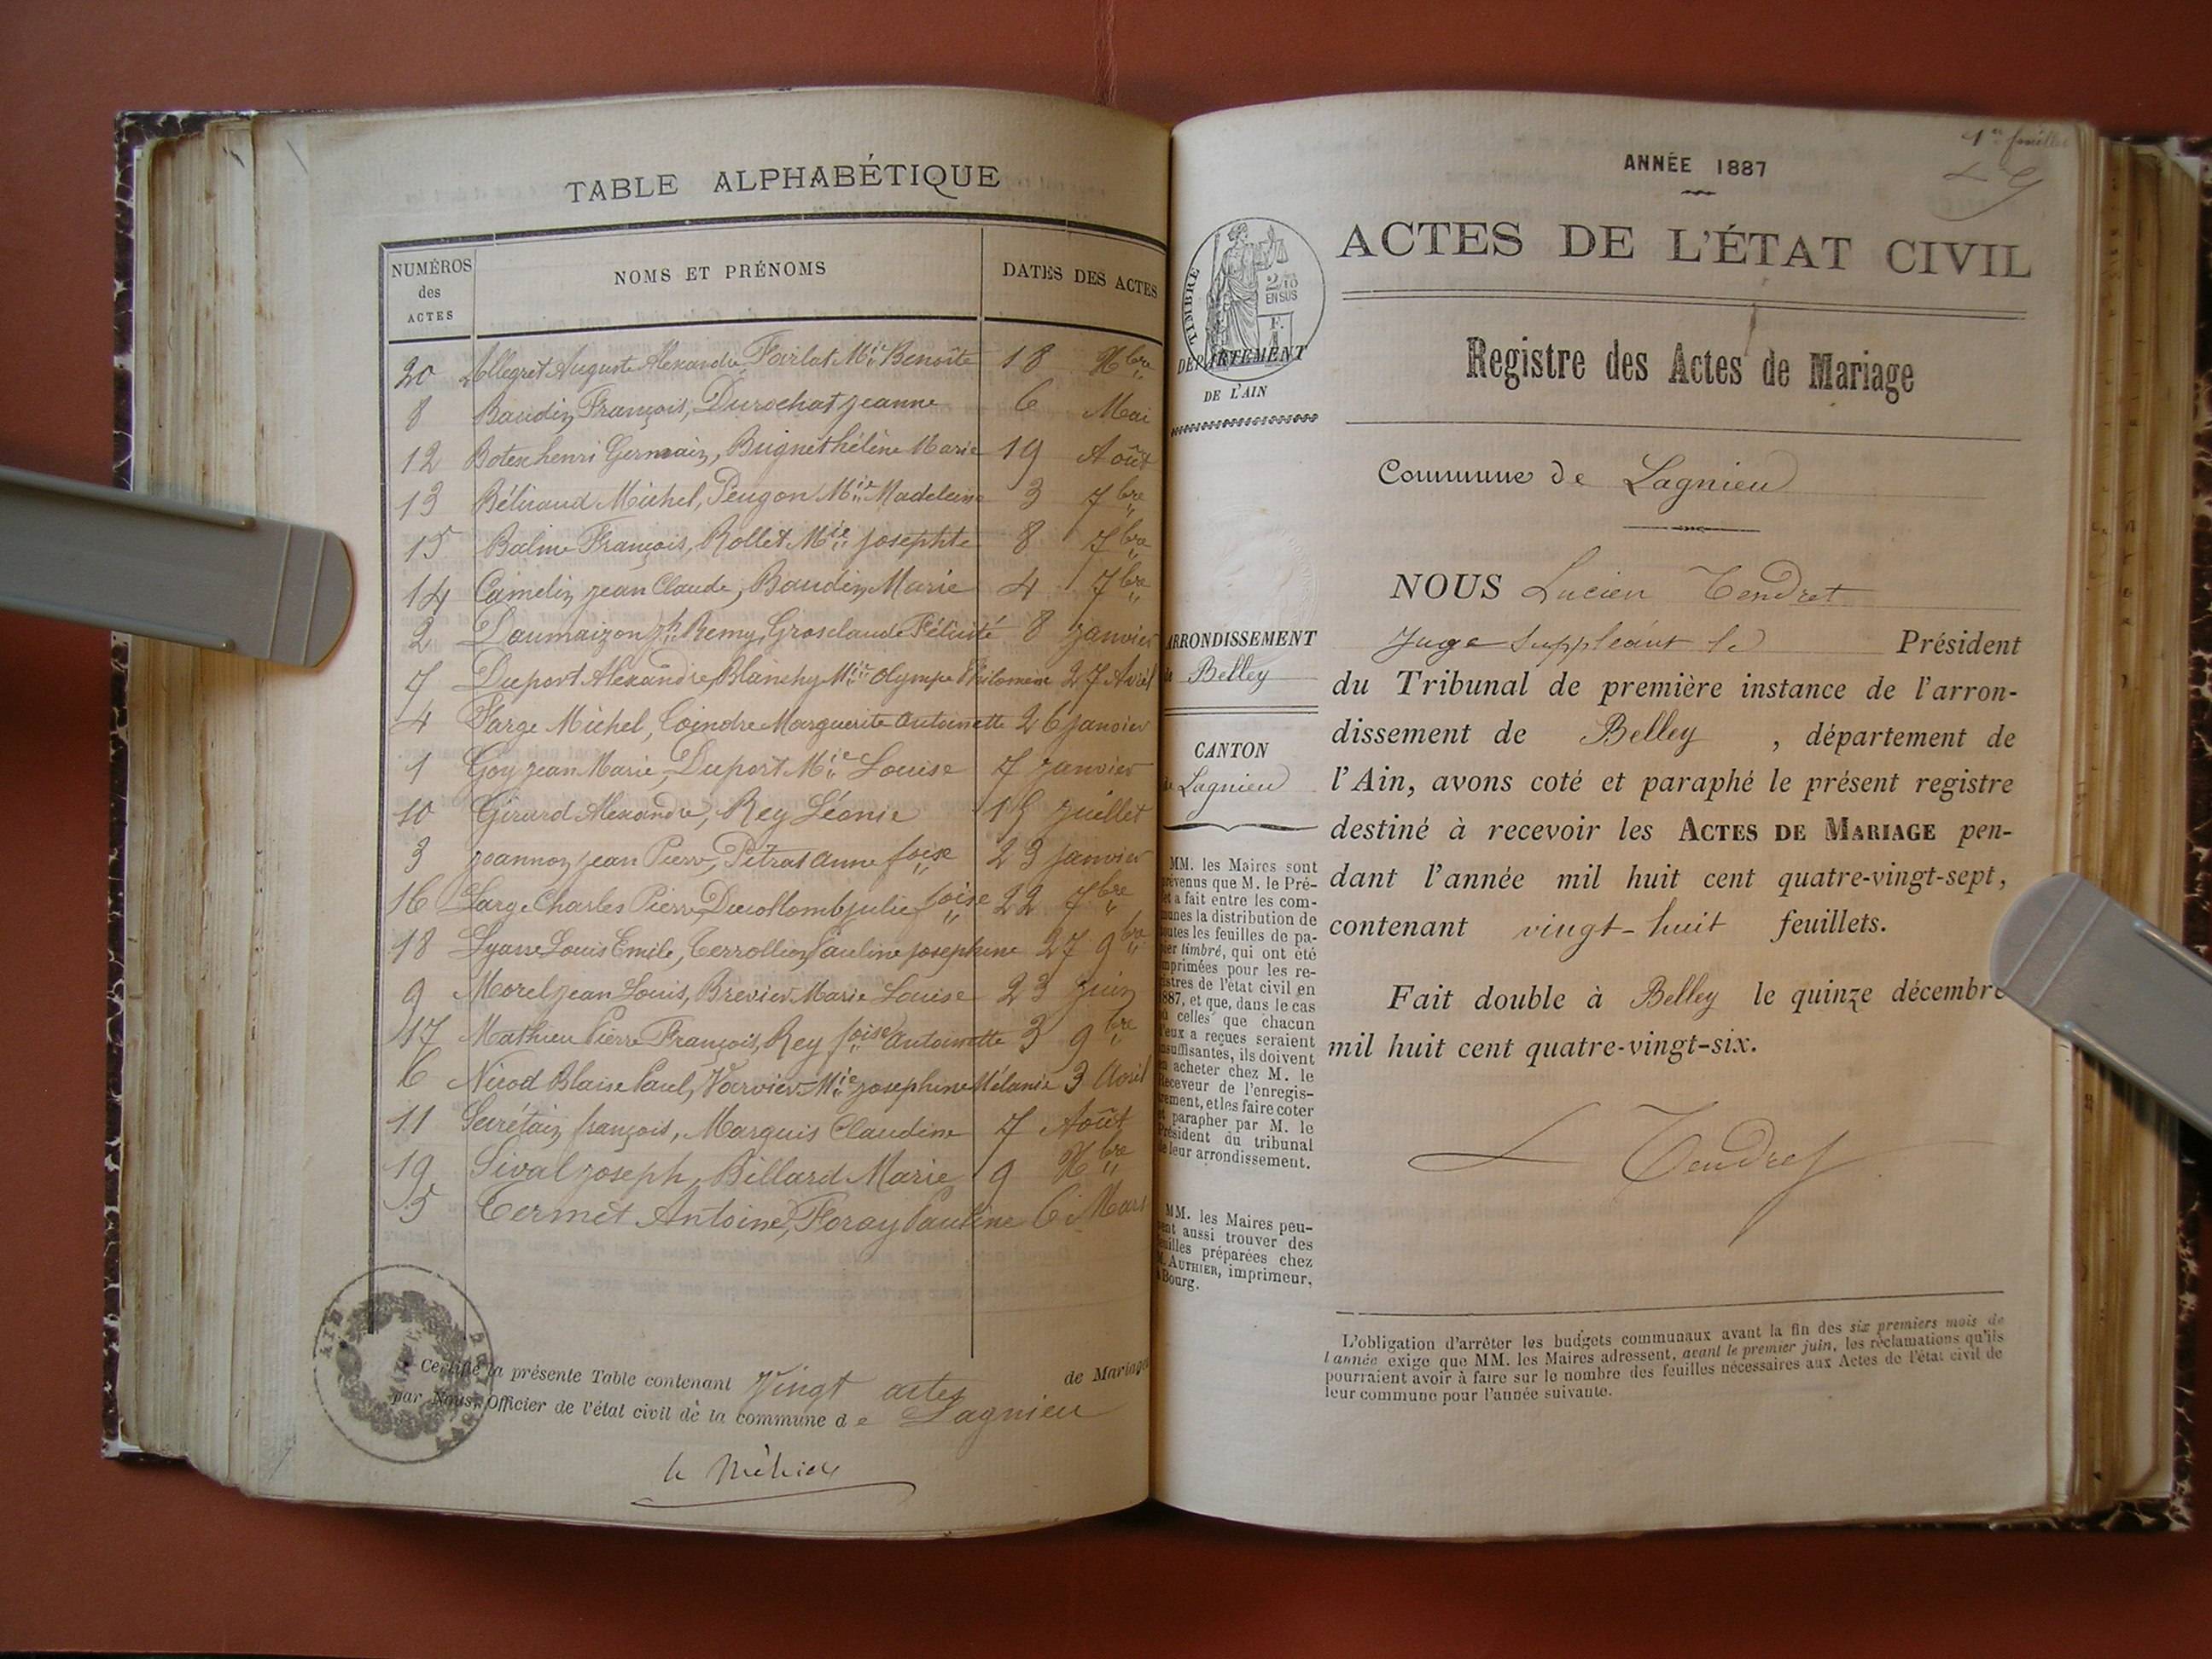 TABLE ALPHABÉTIQUE
NUMÉROS des ACTES NOMS ET PRÉNOMS DATES DES ACTES
20 Allegret Auguste Alexandre, Farlat Mie Benoîte 18 Xbre
8 Baudin François, Durochat Jeanne 6 Mai
12 Botex henri Germain, Bugnet hélène Marie 19 Août
13 Béliraud Michel, Peugon Mie Madeleine 3 7bre
15 Balme François, Rollet Mie Josephte 8 7bre
14 Camelin jean Claude, Baudin Marie 4 7bre
2 Daumaizon Jh Remy, Grosclaude Félicité 8 janvier
7 Duport Alexandre, Blanchy Mie Olympe Philomène 27 Avril
4 Farge Michel, Coindre Marguerite Antoinette 26 janvier
1 Goy jean Marie, Duport Mie Louise 7 janvier
10 Girard Alexandre, Rey Léonie 15 juillet
3 Joannon jean Pierre, Pitrat Anne foise 23 janvier
16 Large Charles Pierre, Ducollomb julie foise 22 7bre
18 Lyasse Louis Emile, Terrollion Pauline josephine 27 9bre
9 Morel jean Louis, Brevier Marie Louise 23 juin
17 Mathieu Pierre François, Rey foise Antoinette 3 9bre
6 Nicod Blaise Paul, Varvier Mie josephine Mélanie 3 Avril
11 Secrétain françois, Marquis Claudine 7 Août
19 Sival joseph, Billard Marie 9 Xbre
5 Termet Antoine, Foray Pauline 6 Mars
Certifié la présente Table contenant Vingt actes de Mariage
par Nous, Officier de l'état civil de la commune de Lagnieu
1er feuillet
ANNÉE 1887
ACTES DE L'ÉTAT CIVIL
Registre des Actes de Mariage
TIMBRE
2/10
EN SUS
DÉPARTEMENT
DE L'AIN
ARRONDISSEMENT
de Belley
CANTON
de Lagnieu
MM. les Maires sont
prévenus que M. le Pré-
fet a fait entre les com-
munes la distribution de
toutes les feuilles de pa-
pier timbré, qui ont été
imprimées pour les re-
gistres de l'état civil en
1887, et que, dans le cas
où celles que chacun
d'eux a reçues seraient
insuffisantes, ils doivent
en acheter chez M. le
Receveur de l'enregis-
trement, et les faire coter
et parapher par M. le
Président du tribunal
de leur arrondissement.
MM. les Maires peu-
vent aussi trouver des
feuilles préparées chez
M. AUTHIER, imprimeur,
à Bourg.
Commune de Lagnieu
NOUS Lucien Tendret
Juge Suppléant le Président
du Tribunal de première instance de l'arron-
dissement de Belley , département de
l'Ain, avons coté et paraphé le présent registre
destiné à recevoir les ACTES DE MARIAGE pen-
dant l'année mil huit cent quatre-vingt-sept,
contenant vingt-huit feuillets.
Fait double à Belley le quinze décembre
mil huit cent quatre-vingt-six.
L Tendret
L'obligation d'arrêter les budgets communaux avant la fin des six premiers mois de
l'année exige que MM. les Maires adressent, avant le premier juin, les réclamations qu'ils
pourraient avoir à faire sur le nombre des feuilles nécessaires aux Actes de l'état civil de
leur commune pour l'année suivante.